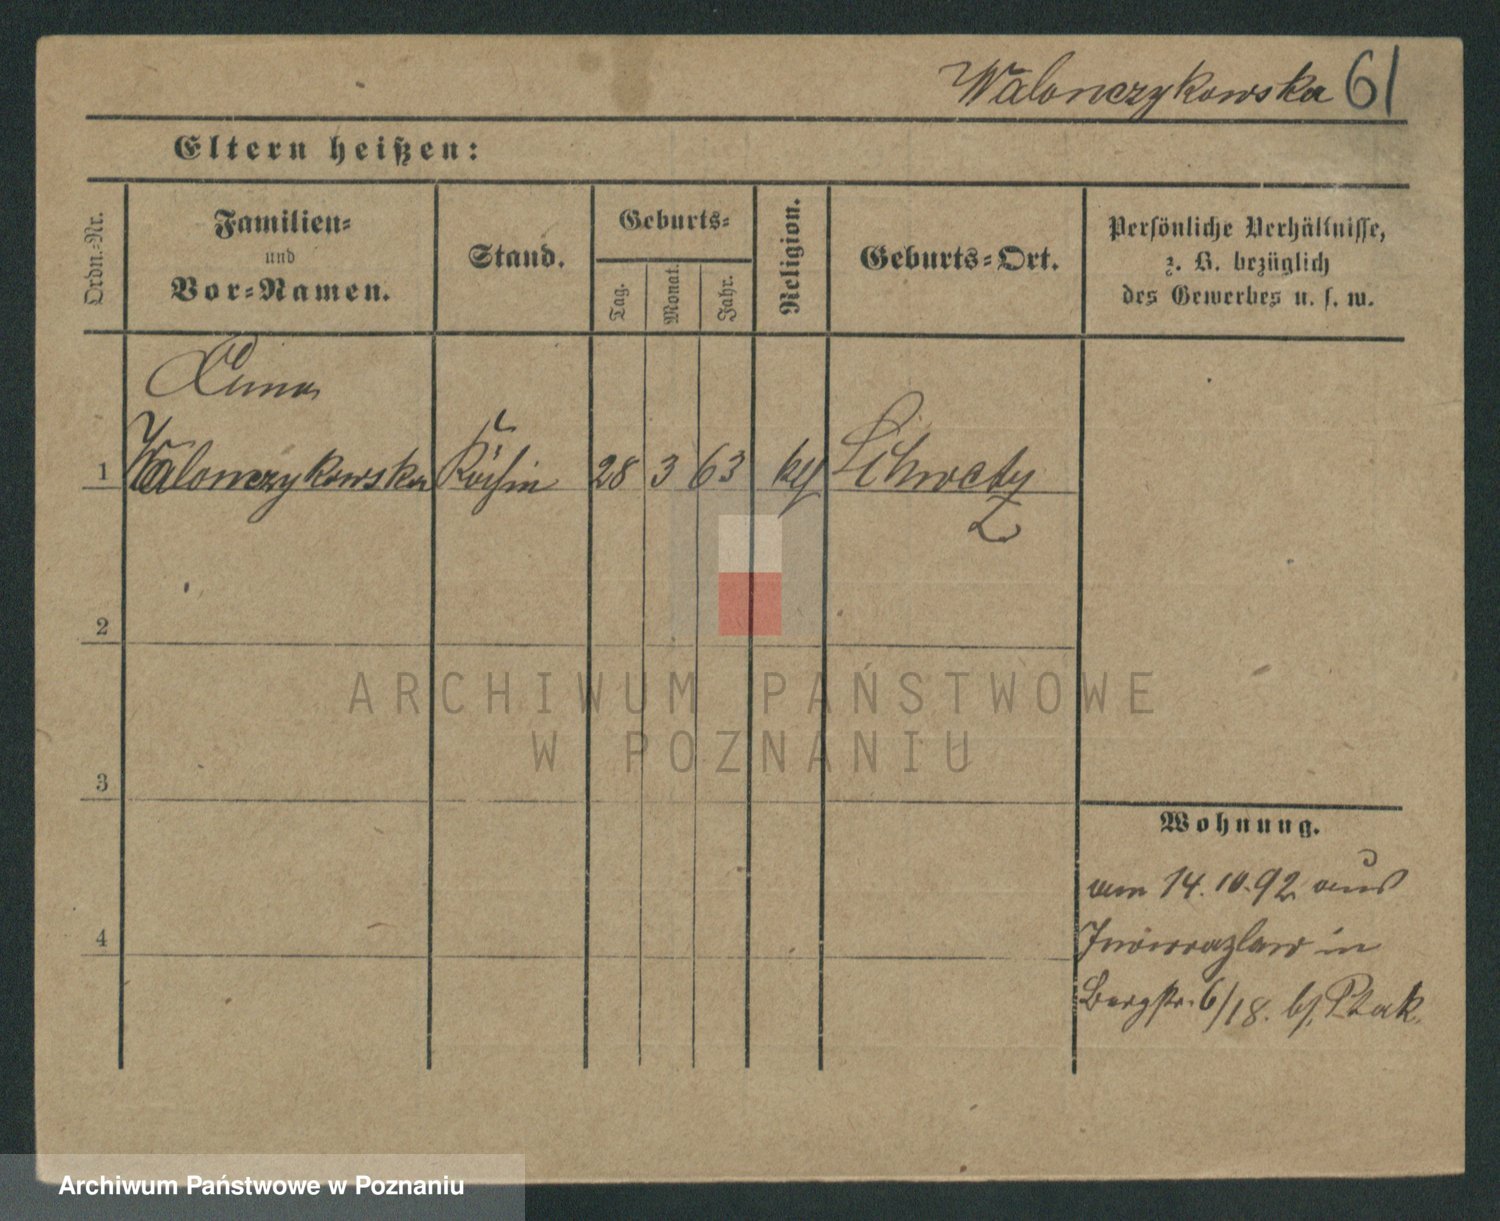 Walonczykowska 61
Eltern heißen:
Ordn.-Nr.
Familien-
und
Vor-Namen.
Stand.
Geburts-
Tag.
Monat.
Jahr.
Religion.
Geburts-Ort.
Persönliche Verhältnisse,
z. B. bezüglich
des Gewerbes u. s. w.
1
Walonczykowska Köchin 28 3 63 kth
2
3
4
Wohnung.
am 14.10.92 aus
Inowrazlaw in
Bergstr. 6/18. bei Ptak.
ARCHIWUM PAŃSTWOWE
W POZNANIU
Archiwum Państwowe w Poznaniu